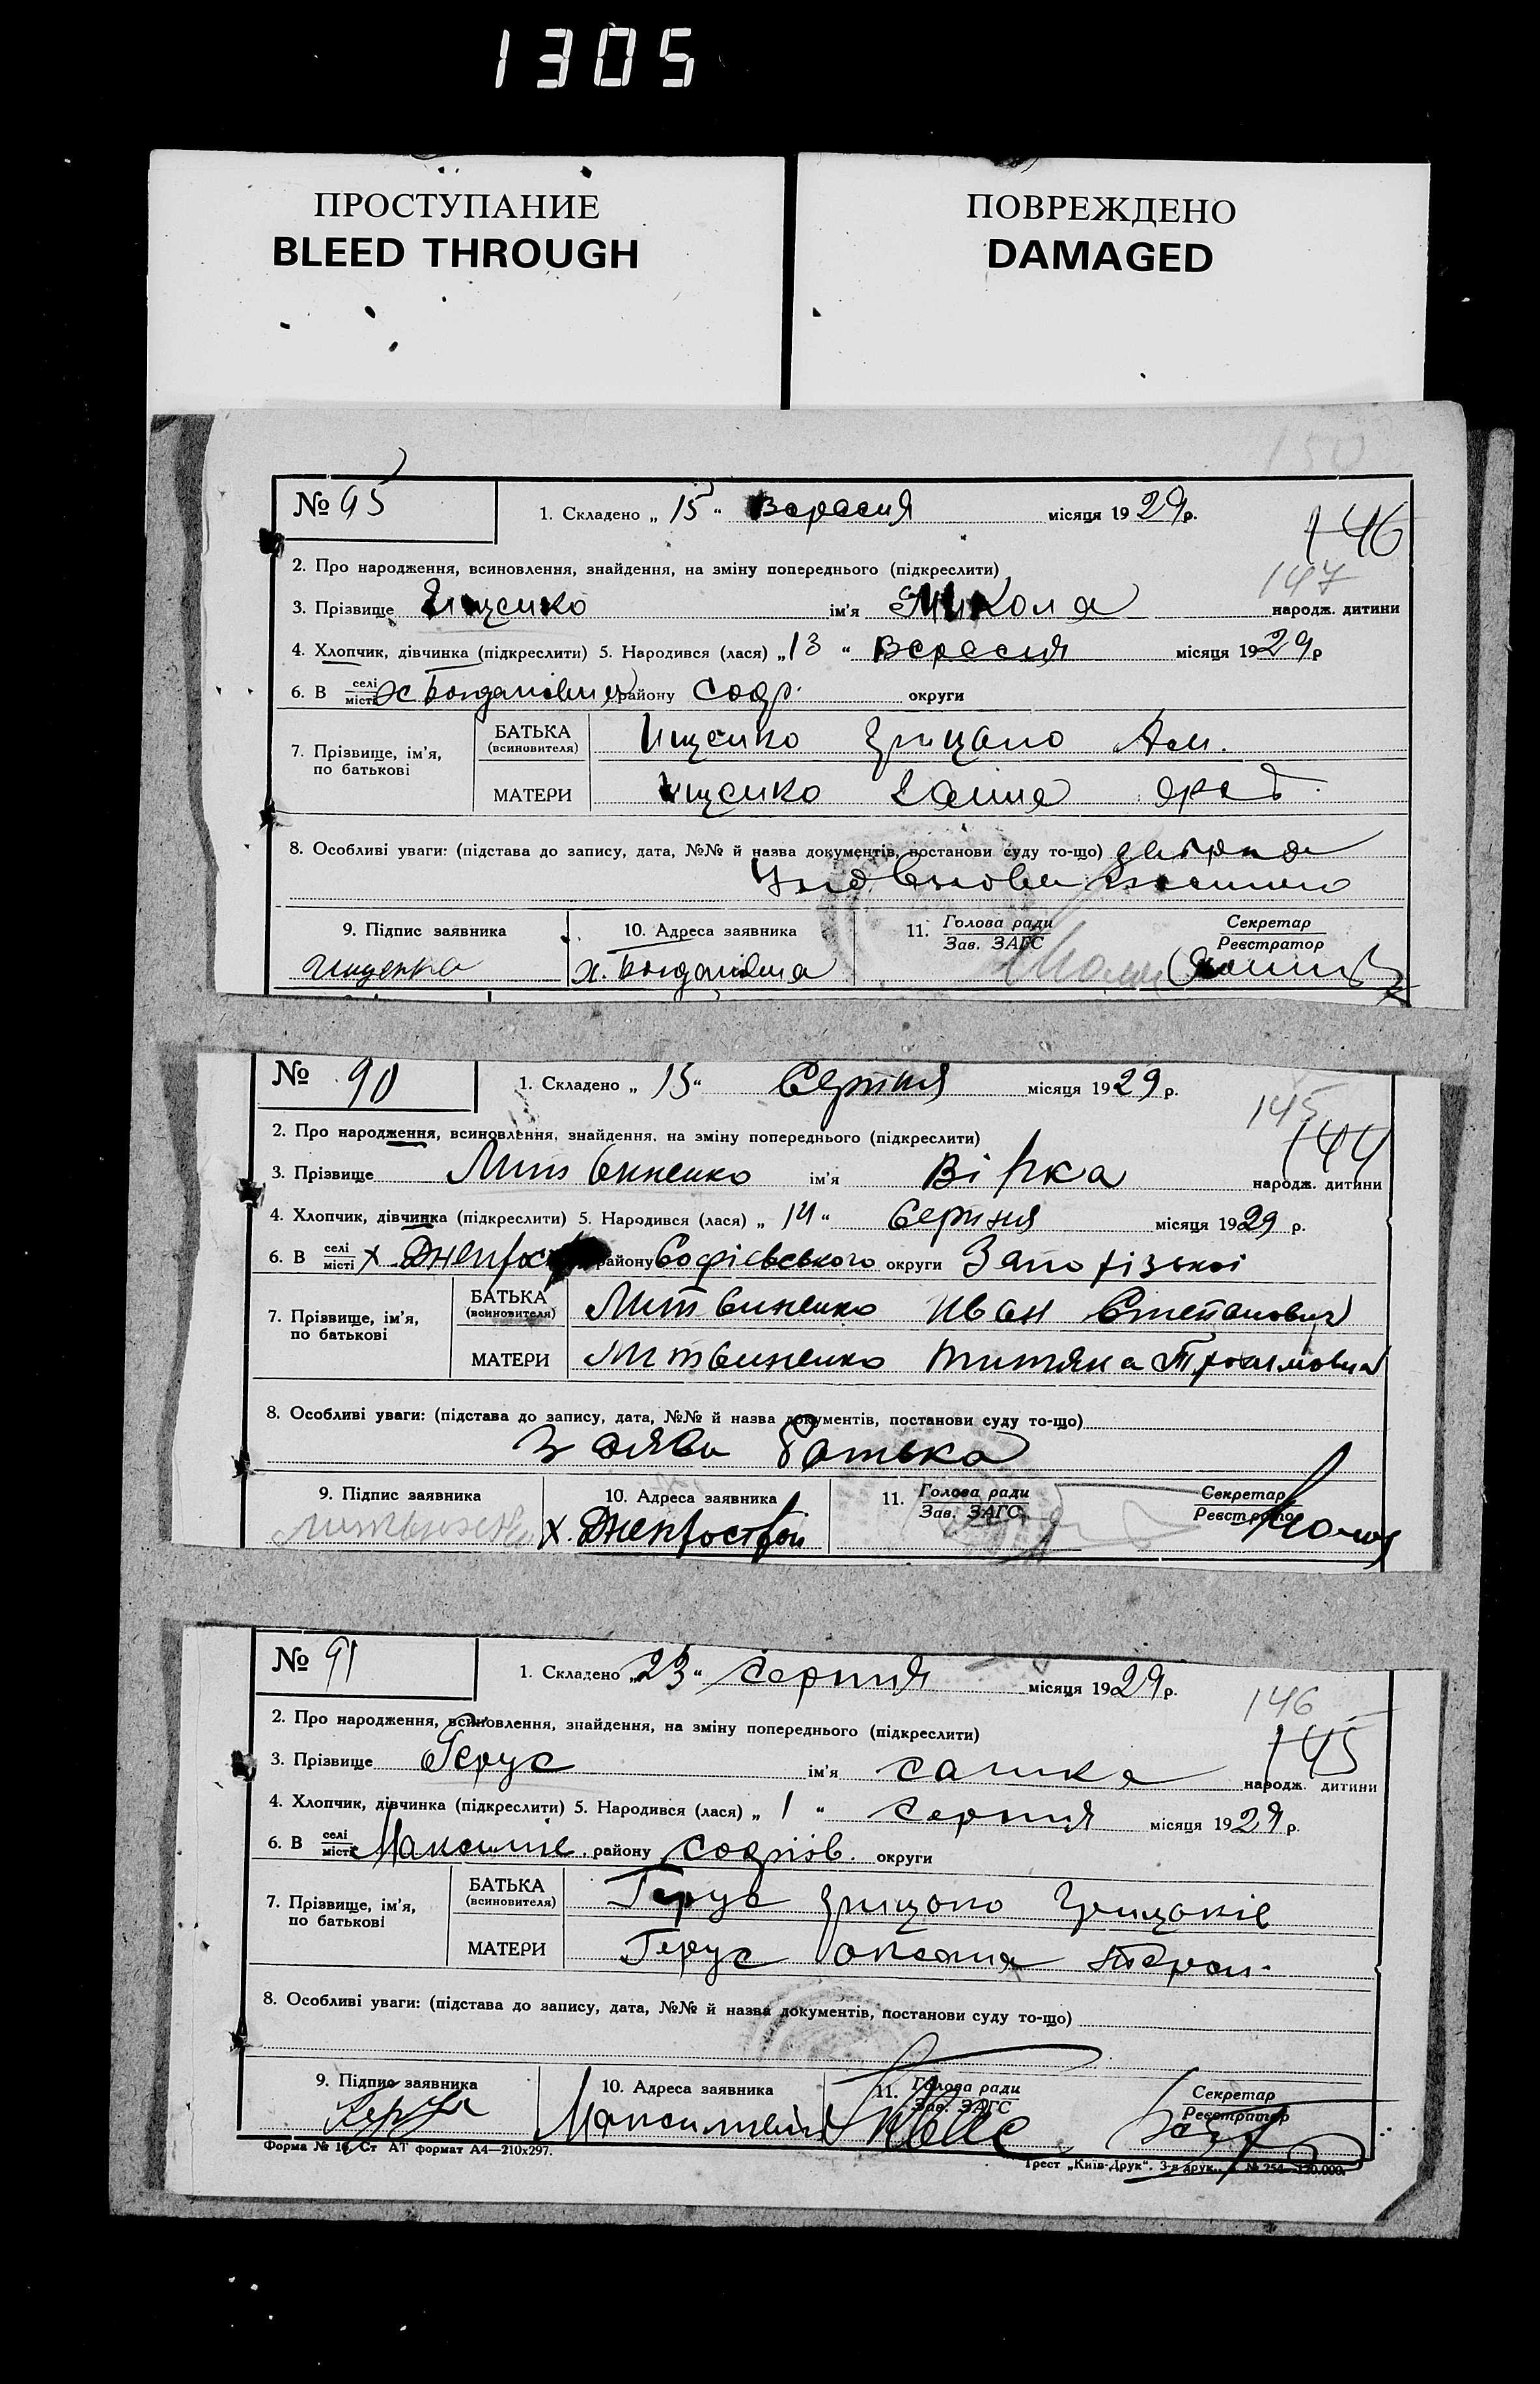 1305
ПРОСТУПАНИЕ
BLEED THROUGH
ПОВРЕЖДЕНО
DAMAGED
150
№ 95
1. Складено „ 15 “ Вересня місяця 1929р.
146
2. Про народження, всиновлення, знайдення, на зміну попереднього (підкреслити)
147
3. Прізвище Ищенко ім'я Микола народж. дитини
4. Хлопчик, дівчинка (підкреслити) 5. Народився (лася) „13 “ Вересня місяця 1929р
6. В селі місті х Богданівци району Софі. округи
7. Прізвище, ім'я, по батькові
БАТЬКА (всиновителя) Ищенко Грицько
МАТЕРИ Ищенко Ганна
8. Особливі уваги: (підстава до запису, дата, №№ й назва документів, постанови суду то-що)
9. Підпис заявника
10. Адреса заявника
11. Голова ради Зав. ЗАГС
Секретар Реєстратор
Ищенко х. Богданівка
№ 90
1. Складено „ 15 “ Серпня місяця 1929 р.
145
2. Про народження, всиновлення, знайдення, на зміну попереднього (підкреслити)
144
3. Прізвище Литвиненко ім'я Вірка народж. дитини
4. Хлопчик, дівчинка (підкреслити) 5. Народився (лася) „ 14 “ Серпня місяця 1929 р.
6. В селі місті х району Софієвського округи Запорізької
7. Прізвище, ім'я, по батькові
БАТЬКА (всиновителя) Литвиненко Иван Степанович
МАТЕРИ Литвиненко Титяна Трохимовна
8. Особливі уваги: (підстава до запису, дата, №№ й назва документів, постанови суду то-що)
Заяви батька
9. Підпис заявника
10. Адреса заявника
11. Голова ради Зав. ЗАГС
Секретар Реєстратор
х. Днепрострой
№ 91
1. Складено „23“ серпня місяця 1929 р.
146
2. Про народження, всиновлення, знайдення, на зміну попереднього (підкреслити)
145
3. Прізвище Герус ім'я сашка народж. дитини
4. Хлопчик, дівчинка (підкреслити) 5. Народився (лася) „ 1 “ серпня місяця 1929 р.
6. В селі місті району Софіів. округи
7. Прізвище, ім'я, по батькові
БАТЬКА (всиновителя) Герус Грицько Грицьків
МАТЕРИ Герус Оксана
8. Особливі уваги: (підстава до запису, дата, №№ й назва документів, постанови суду то-що)
9. Підпис заявника
10. Адреса заявника
11. Голова ради Зав. ЗАГС
Секретар Реєстратор
Форма № 16, Ст АТ формат А4—210х297.
Трест „Київ-Друк“. 3-я друк. № 254—120.000.